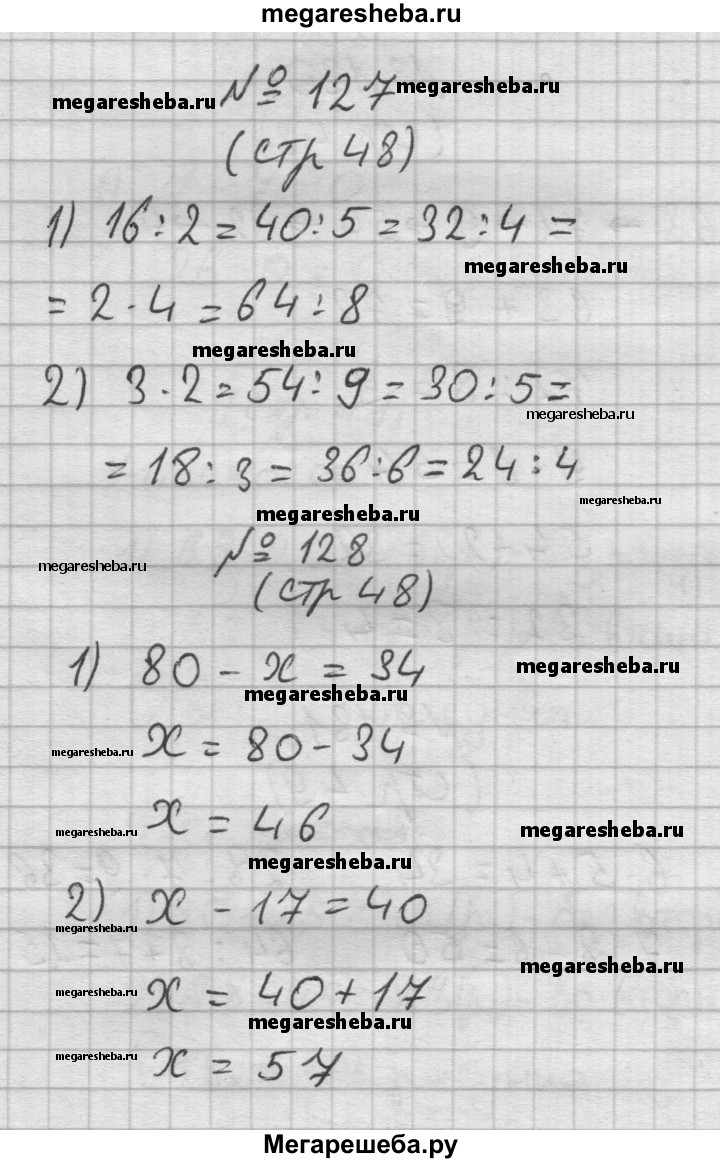 megaresheba.ru
megaresheba.ru № 127 megaresheba.ru
(стр 48)
1) 16 : 2 = 40 : 5 = 32 : 4 =
megaresheba.ru
= 2 · 4 = 64 : 8
megaresheba.ru
2) 3 · 2 = 54 : 9 = 30 : 5 =
megaresheba.ru
= 18 : 3 = 36 : 6 = 24 : 4
megaresheba.ru
megaresheba.ru
№ 128
megaresheba.ru
(стр 48)
1) 80 - x = 34
megaresheba.ru
megaresheba.ru
x = 80 - 34
megaresheba.ru
x = 46
megaresheba.ru
megaresheba.ru
megaresheba.ru
2) x - 17 = 40
megaresheba.ru
megaresheba.ru
x = 40 + 17
megaresheba.ru
megaresheba.ru
x = 57
megaresheba.ru
Мегарешеба.ру